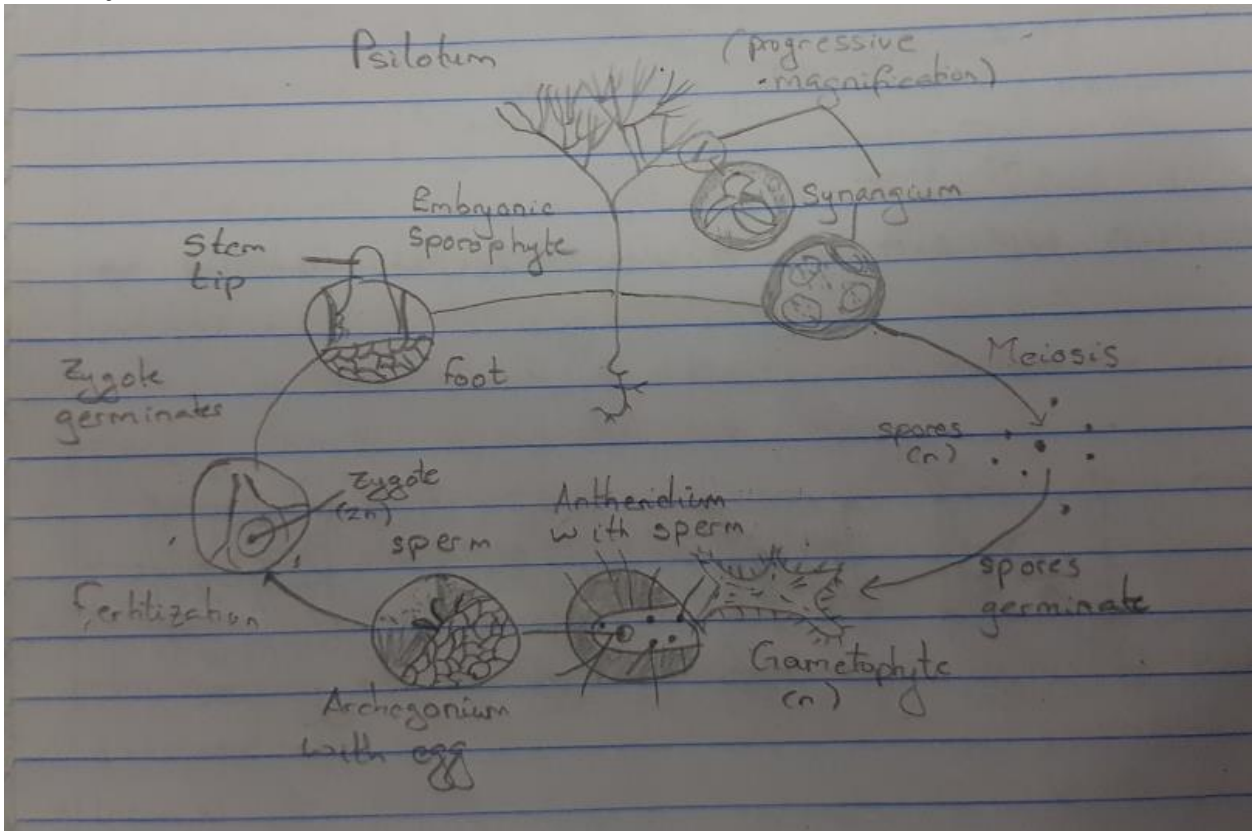 Psilotum
(progressive
magnification)
Synangium
Embryonic
Sporophyte
Stem
tip
foot
Meiosis
Zygote
germinates
spores
(n)
Zygote
(2n)
sperm
Antheridium
with sperm
spores
germinate
Fertilization
Gametophyte
(n)
Archegonium
with egg